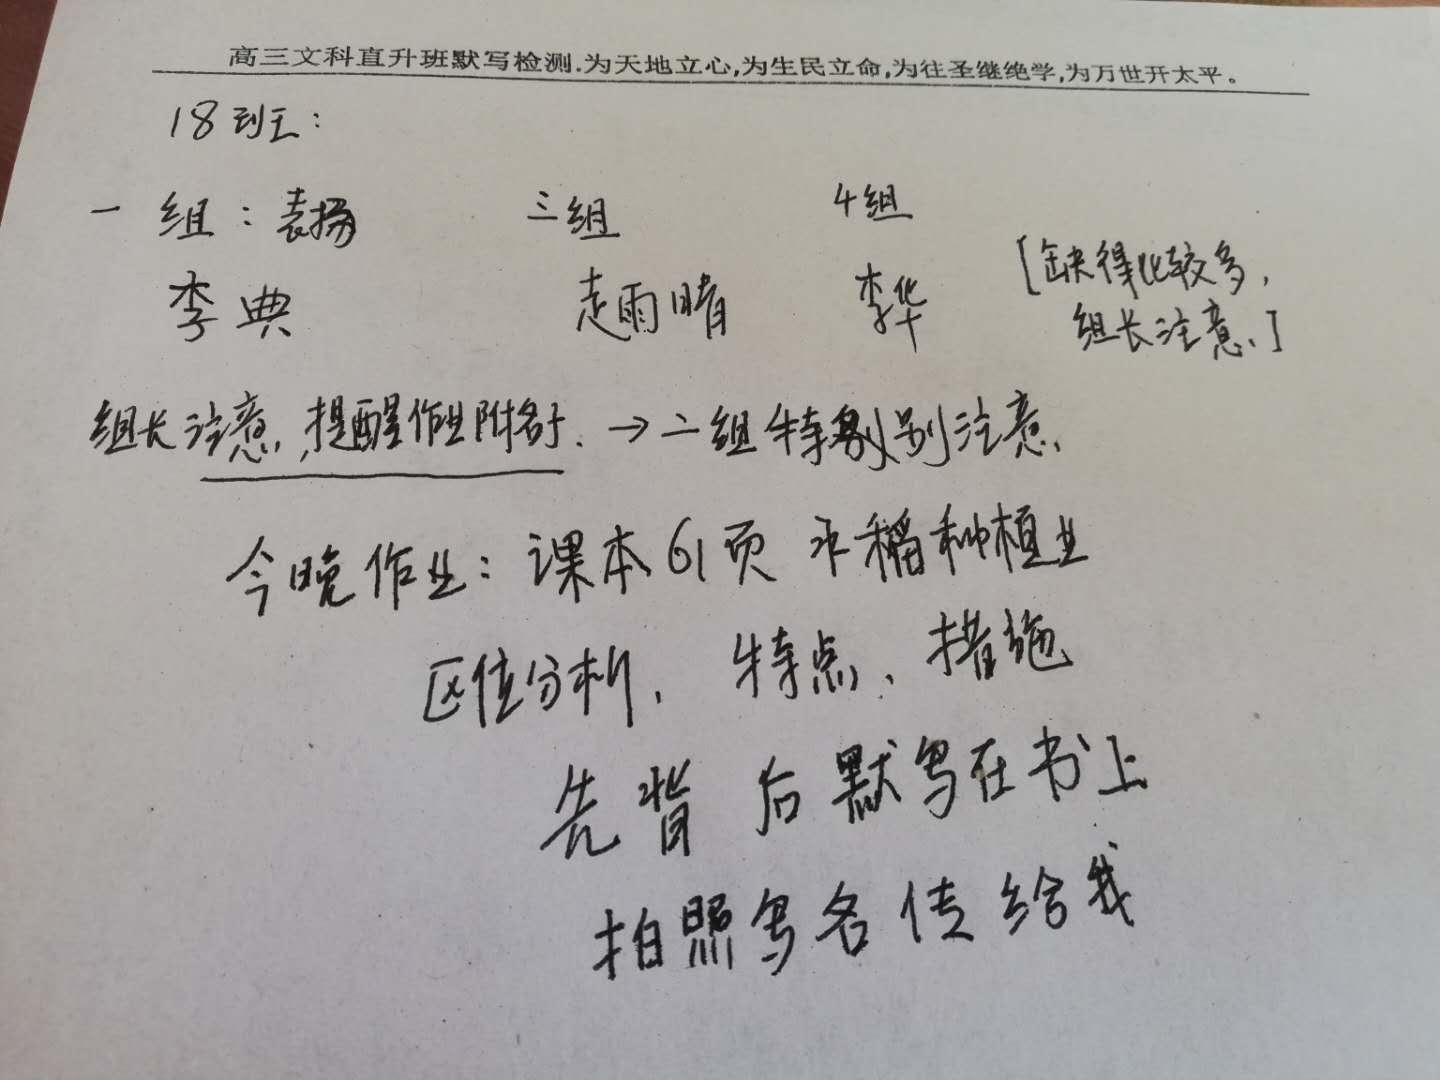 高三文科直升班默写检测.为天地立心,为生民立命,为往圣继绝学,为万世开太平。
18班:
一组:袁扬 三组 4组
李典 赵雨晴 李华 [缺得比较多,
组长注意.]
组长注意,提醒作业附名子. → 二组特别注意.
今晚作业:课本61页 水稻种植业
区位分析、特点、措施
先背 后默写在书上
拍照写名传给我